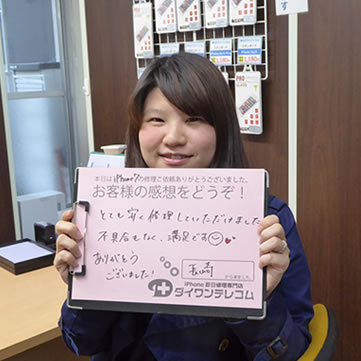 本日は iPhone7の修理ご依頼ありがとうございました。
お客様の感想をどうぞ!
とても安く修理していただけました
不具合もなく、満足です
ありがとう
ございました!
長崎
から来ました。
iPhone 即日修理専門店
ダイワンテレコム